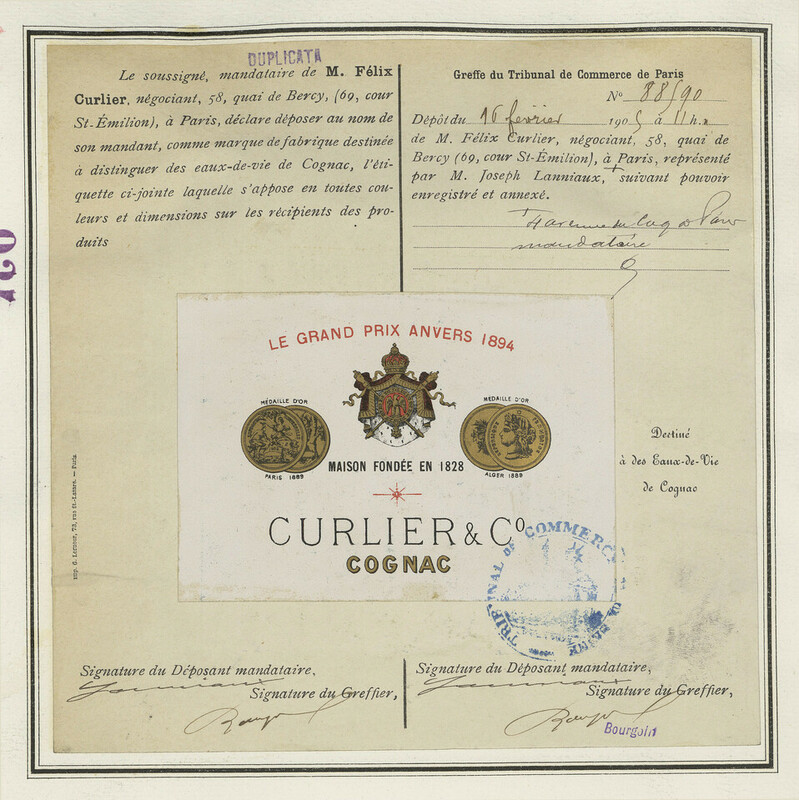 DUPLICATA
Le soussigné, mandataire de M. Félix
Curlier, négociant, 58, quai de Bercy, (69, cour
St-Émilion), à Paris, déclare déposer au nom de
son mandant, comme marque de fabrique destinée
à distinguer des eaux-de-vie de Cognac, l'éti-
quette ci-jointe laquelle s'appose en toutes cou-
leurs et dimensions sur les récipients des pro-
duits
Greffe du Tribunal de Commerce de Paris
No 88590
Dépôt du 16 février 1905 à 11 h.
de M. Félix Curlier, négociant, 58, quai de
Bercy (69, cour St-Émilion), à Paris, représenté
par M. Joseph Lanniaux, + suivant pouvoir
enregistré et annexé.
+ 4 avenue du Coq à Paris
mandataire
LE GRAND PRIX ANVERS 1894
MÉDAILLE D'OR
PARIS 1889
MÉDAILLE D'OR
ALGER 1889
MAISON FONDÉE EN 1828
CURLIER & Co
COGNAC
Destiné
à des Eaux-de-Vie
de Cognac
TRIBUNAL DE COMMERCE
Signature du Déposant mandataire,
Lanniaux
Signature du Greffier,
Signature du Déposant mandataire,
Lanniaux
Signature du Greffier,
Bourgoin